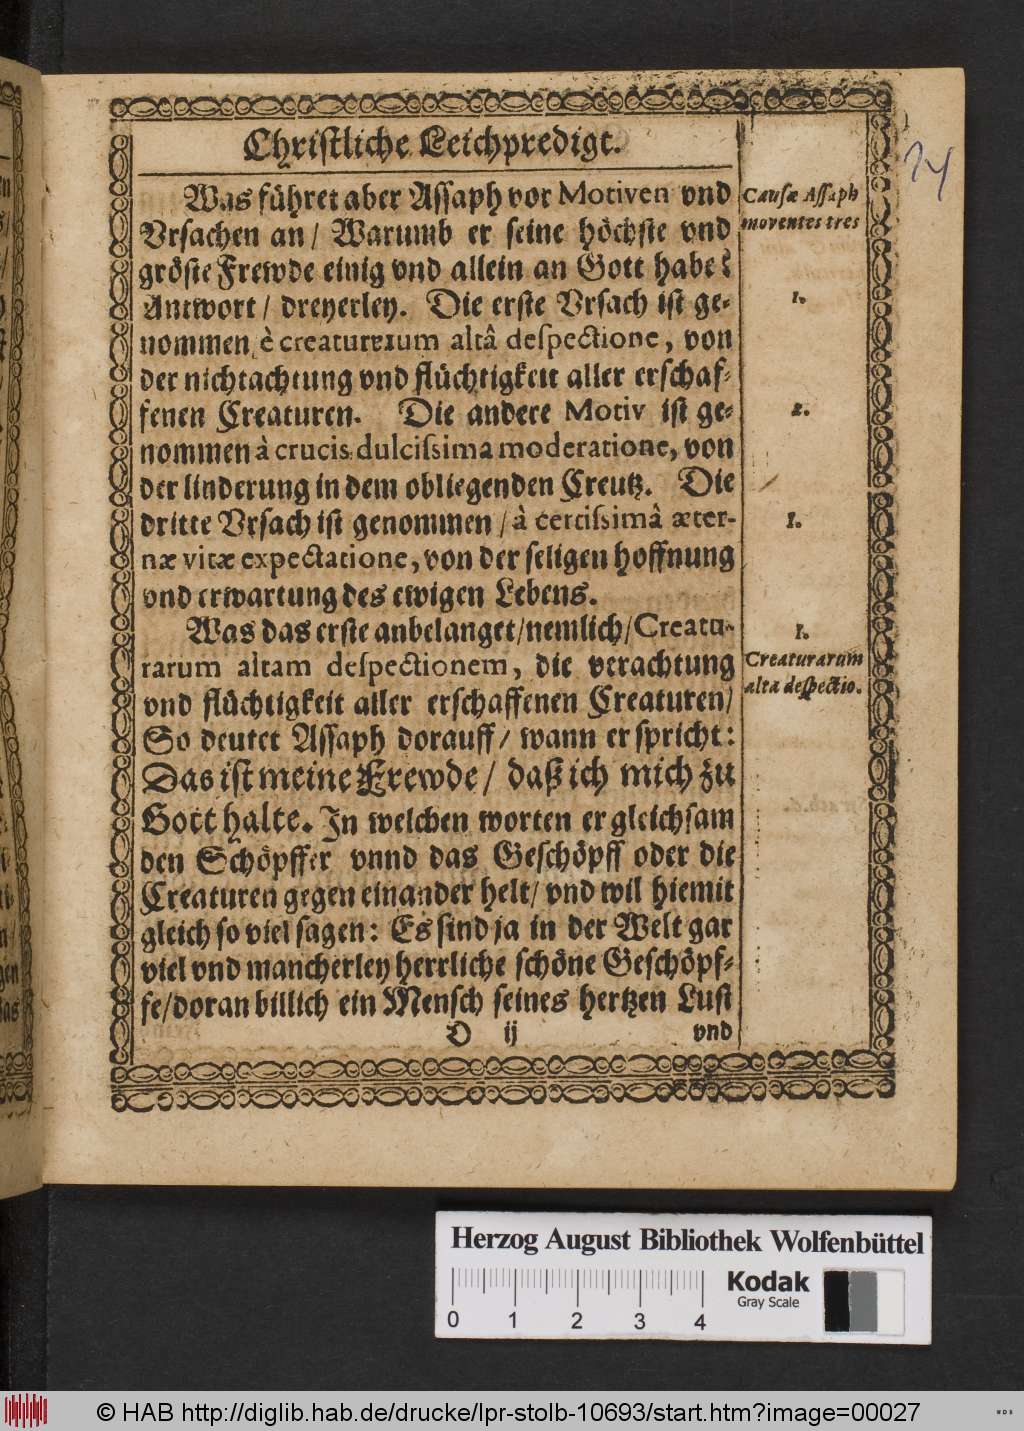 Christliche Leichpredigt.
Was führet aber Assaph vor Motiven vnd
Vrsachen an / Warumb er seine höchste vnd
gröste Frewde einig vnd allein an Gott habe?
Antwort / dreyerley. Die erste Vrsach ist ge-
nommen è creaturarum altâ despectione, von
der nichtachtung vnd flüchtigkeit aller erschaf-
fenen Creaturen. Die andere Motiv ist ge-
nommen à crucis dulcissima moderatione, von
der linderung in dem obliegenden Creutz. Die
dritte Vrsach ist genommen / à certissimâ æter-
næ vitæ expectatione, von der seligen hoffnung
vnd erwartung des ewigen Lebens.
Was das erste anbelanget/nemlich/Creatu-
rarum altam despectionem, die verachtung
vnd flüchtigkeit aller erschaffenen Creaturen/
So deutet Assaph dorauff / wann er spricht:
Das ist meine Frewde / daß ich mich zu
Gott halte. In welchen worten er gleichsam
den Schöpffer vnnd das Geschöpff oder die
Creaturen gegen einander helt/ vnd wil hiemit
gleich so viel sagen: Es sind ja in der Welt gar
viel vnd mancherley herrliche schöne Geschöpf-
fe/doran billich ein Mensch seines hertzen Lust
D ij
vnd
Causæ Assaph
moventes tres
1.
2.
I.
I.
Creaturarum
alta despectio.
Herzog August Bibliothek Wolfenbüttel
0 1 2 3 4
Kodak
Gray Scale
© HAB http://diglib.hab.de/drucke/lpr-stolb-10693/start.htm?image=00027